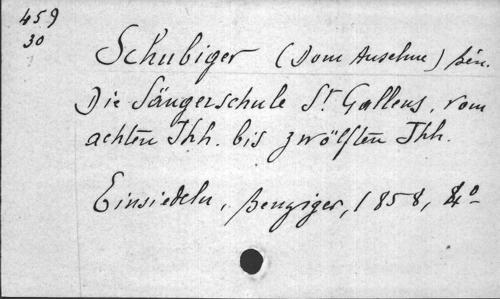 459
30
Schubiger (Dom Anselme) bén.
Die Sängerschule St Gallens, vom
achten Jhh. bis zwölften Jhh.
Einsiedeln, Benziger, 1858, 4o